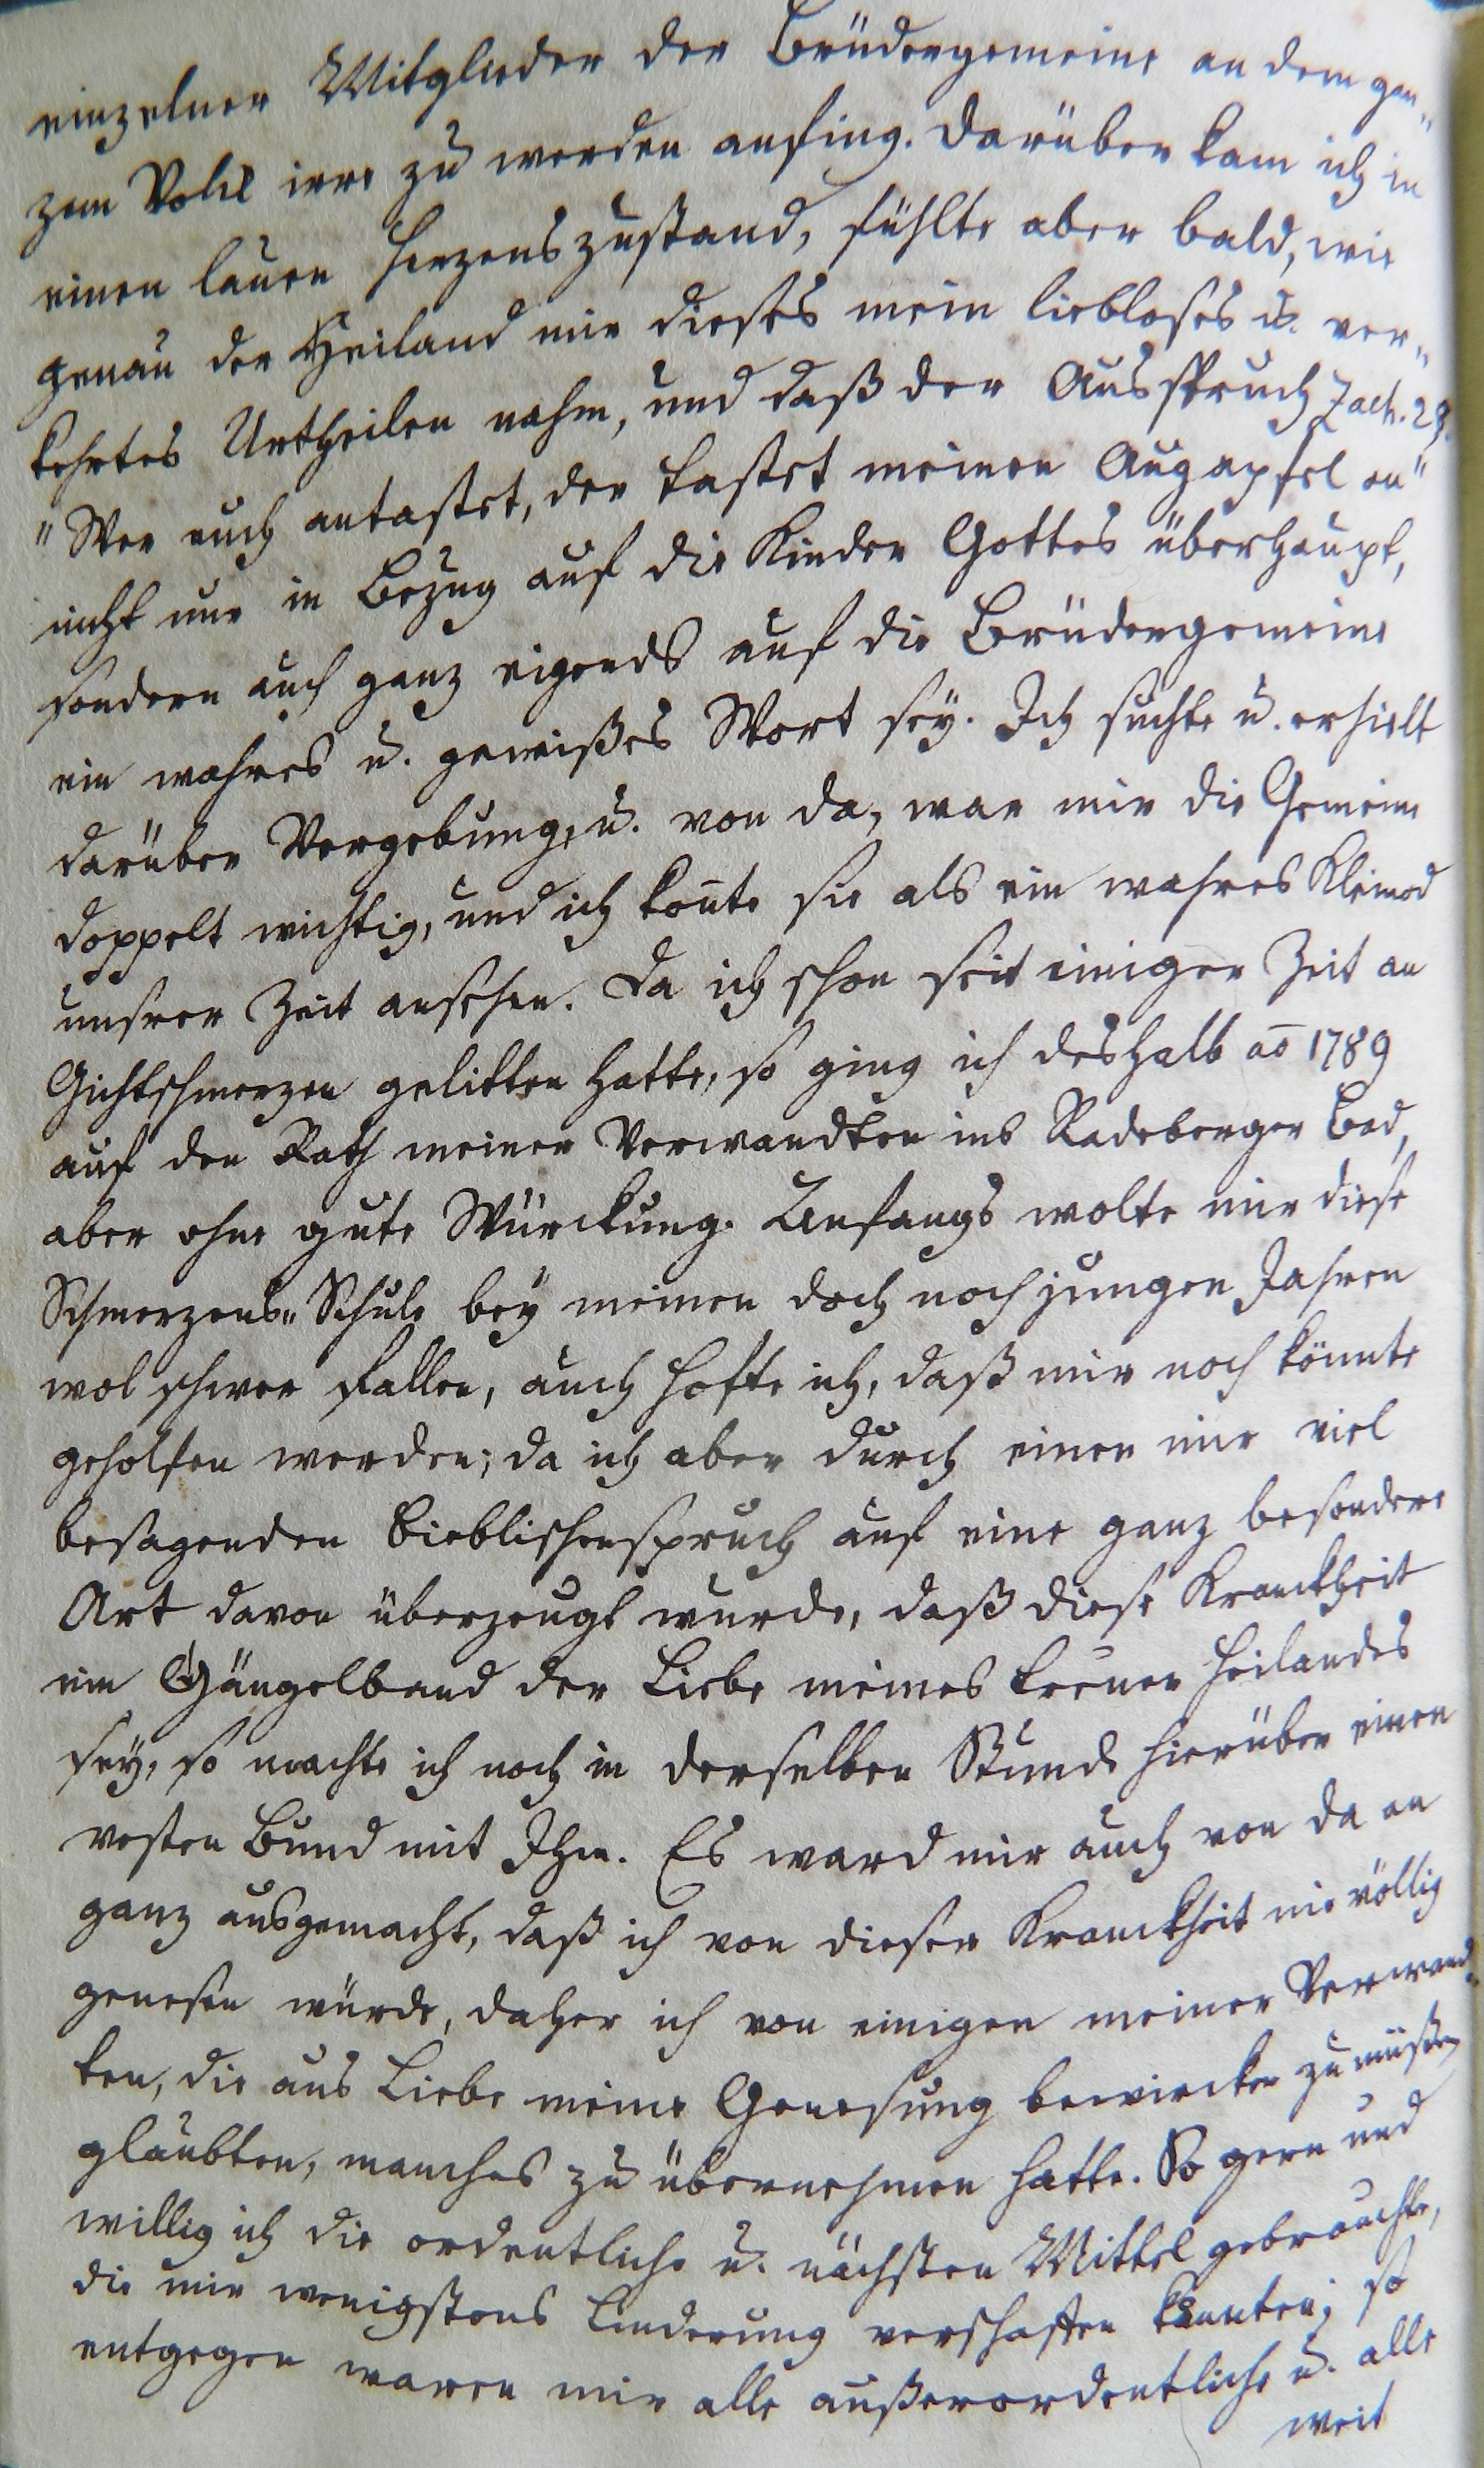 einzelner Mitglieder der Brüdergemeine an dem gan„
zen Volck irre zu werden anfing. Darüber kam ich in
einen lauen Herzenszustand, fühlte aber bald, wie
genau der Heiland mir dieses mein liebloses u. ver„
kehrtes Urtheilen nahm, und daß der Ausspruch Zach. 2,8.
"Wer euch antastet, der tastet meinen Augapfel an"
nicht nur in Bezug auf die Kinder Gottes überhaupt,
sondern auch ganz eigends auf die Brüdergemeine
ein wahres u. gewißes Wort sey. Ich suchte u. erhielt
darüber Vergebung, u. von da, war mir die Gemeine
doppelt wichtig, und ich kon̄te sie als ein wahres Kleinod
unsrer Zeit ansehen. Da ich schon seit einiger Zeit an
Gichtschmerzen gelitten hatte, so ging ich deshalb ao 1789
auf den Rath meiner Verwandten ins Radeberger Bad,
aber ohne gute Würckung. Anfangs wolte mir diese
Schmerzens„Schule bey meinen doch noch jungen Jahren
wol schwer fallen, auch hofte ich, daß mir noch könnte
geholfen werden; da ich aber durch einen mir viel
besagenden Bieblischenspruch auf eine ganz besondere
Art davon überzeugt wurde, daß diese Kranckheit
ein Gängelband der Liebe meines treuen Heilandes
sey, so machte ich noch in derselben Stunde hierüber einen
vesten Bund mit Ihm. Es ward mir auch von da an
ganz ausgemacht, daß ich von dieser Kranckheit nie völlig
genesen würde, daher ich von einigen meiner Verwand„
ten, die aus Liebe meine Genesung bewircken zu müßen
glaubten, manches zu übernehmen hatte. So gern und
willig ich die ordentliche u. nächsten Mittel gebrauchte,
die mir wenigstens Linderung verschaften konnten; so
entgegen waren mir alle außerordentliche u. alle
weit